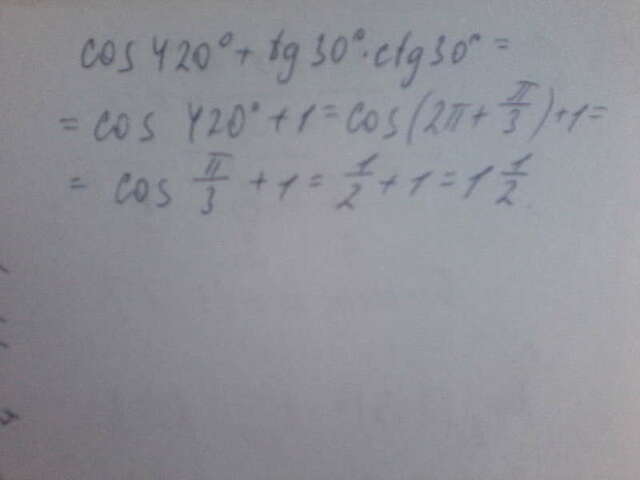 cos 420° + tg 30° · ctg 30° =
= cos 420° + 1 = cos(2π + π/3) + 1 =
= cos π/3 + 1 = 1/2 + 1 = 1 1/2.